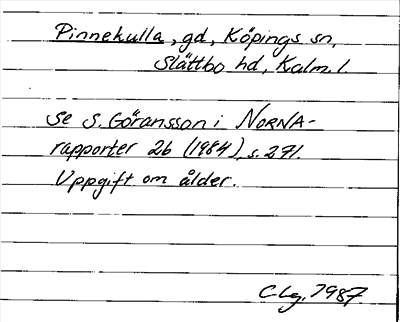 Pinnekulla, gd, Köpings sn,
Slättbo hd, Kalm. l.
Se S. Göransson i NORNA-
rapporter 26 (1984), s. 271.
Uppgift om ålder.
C-Lg, 1987.